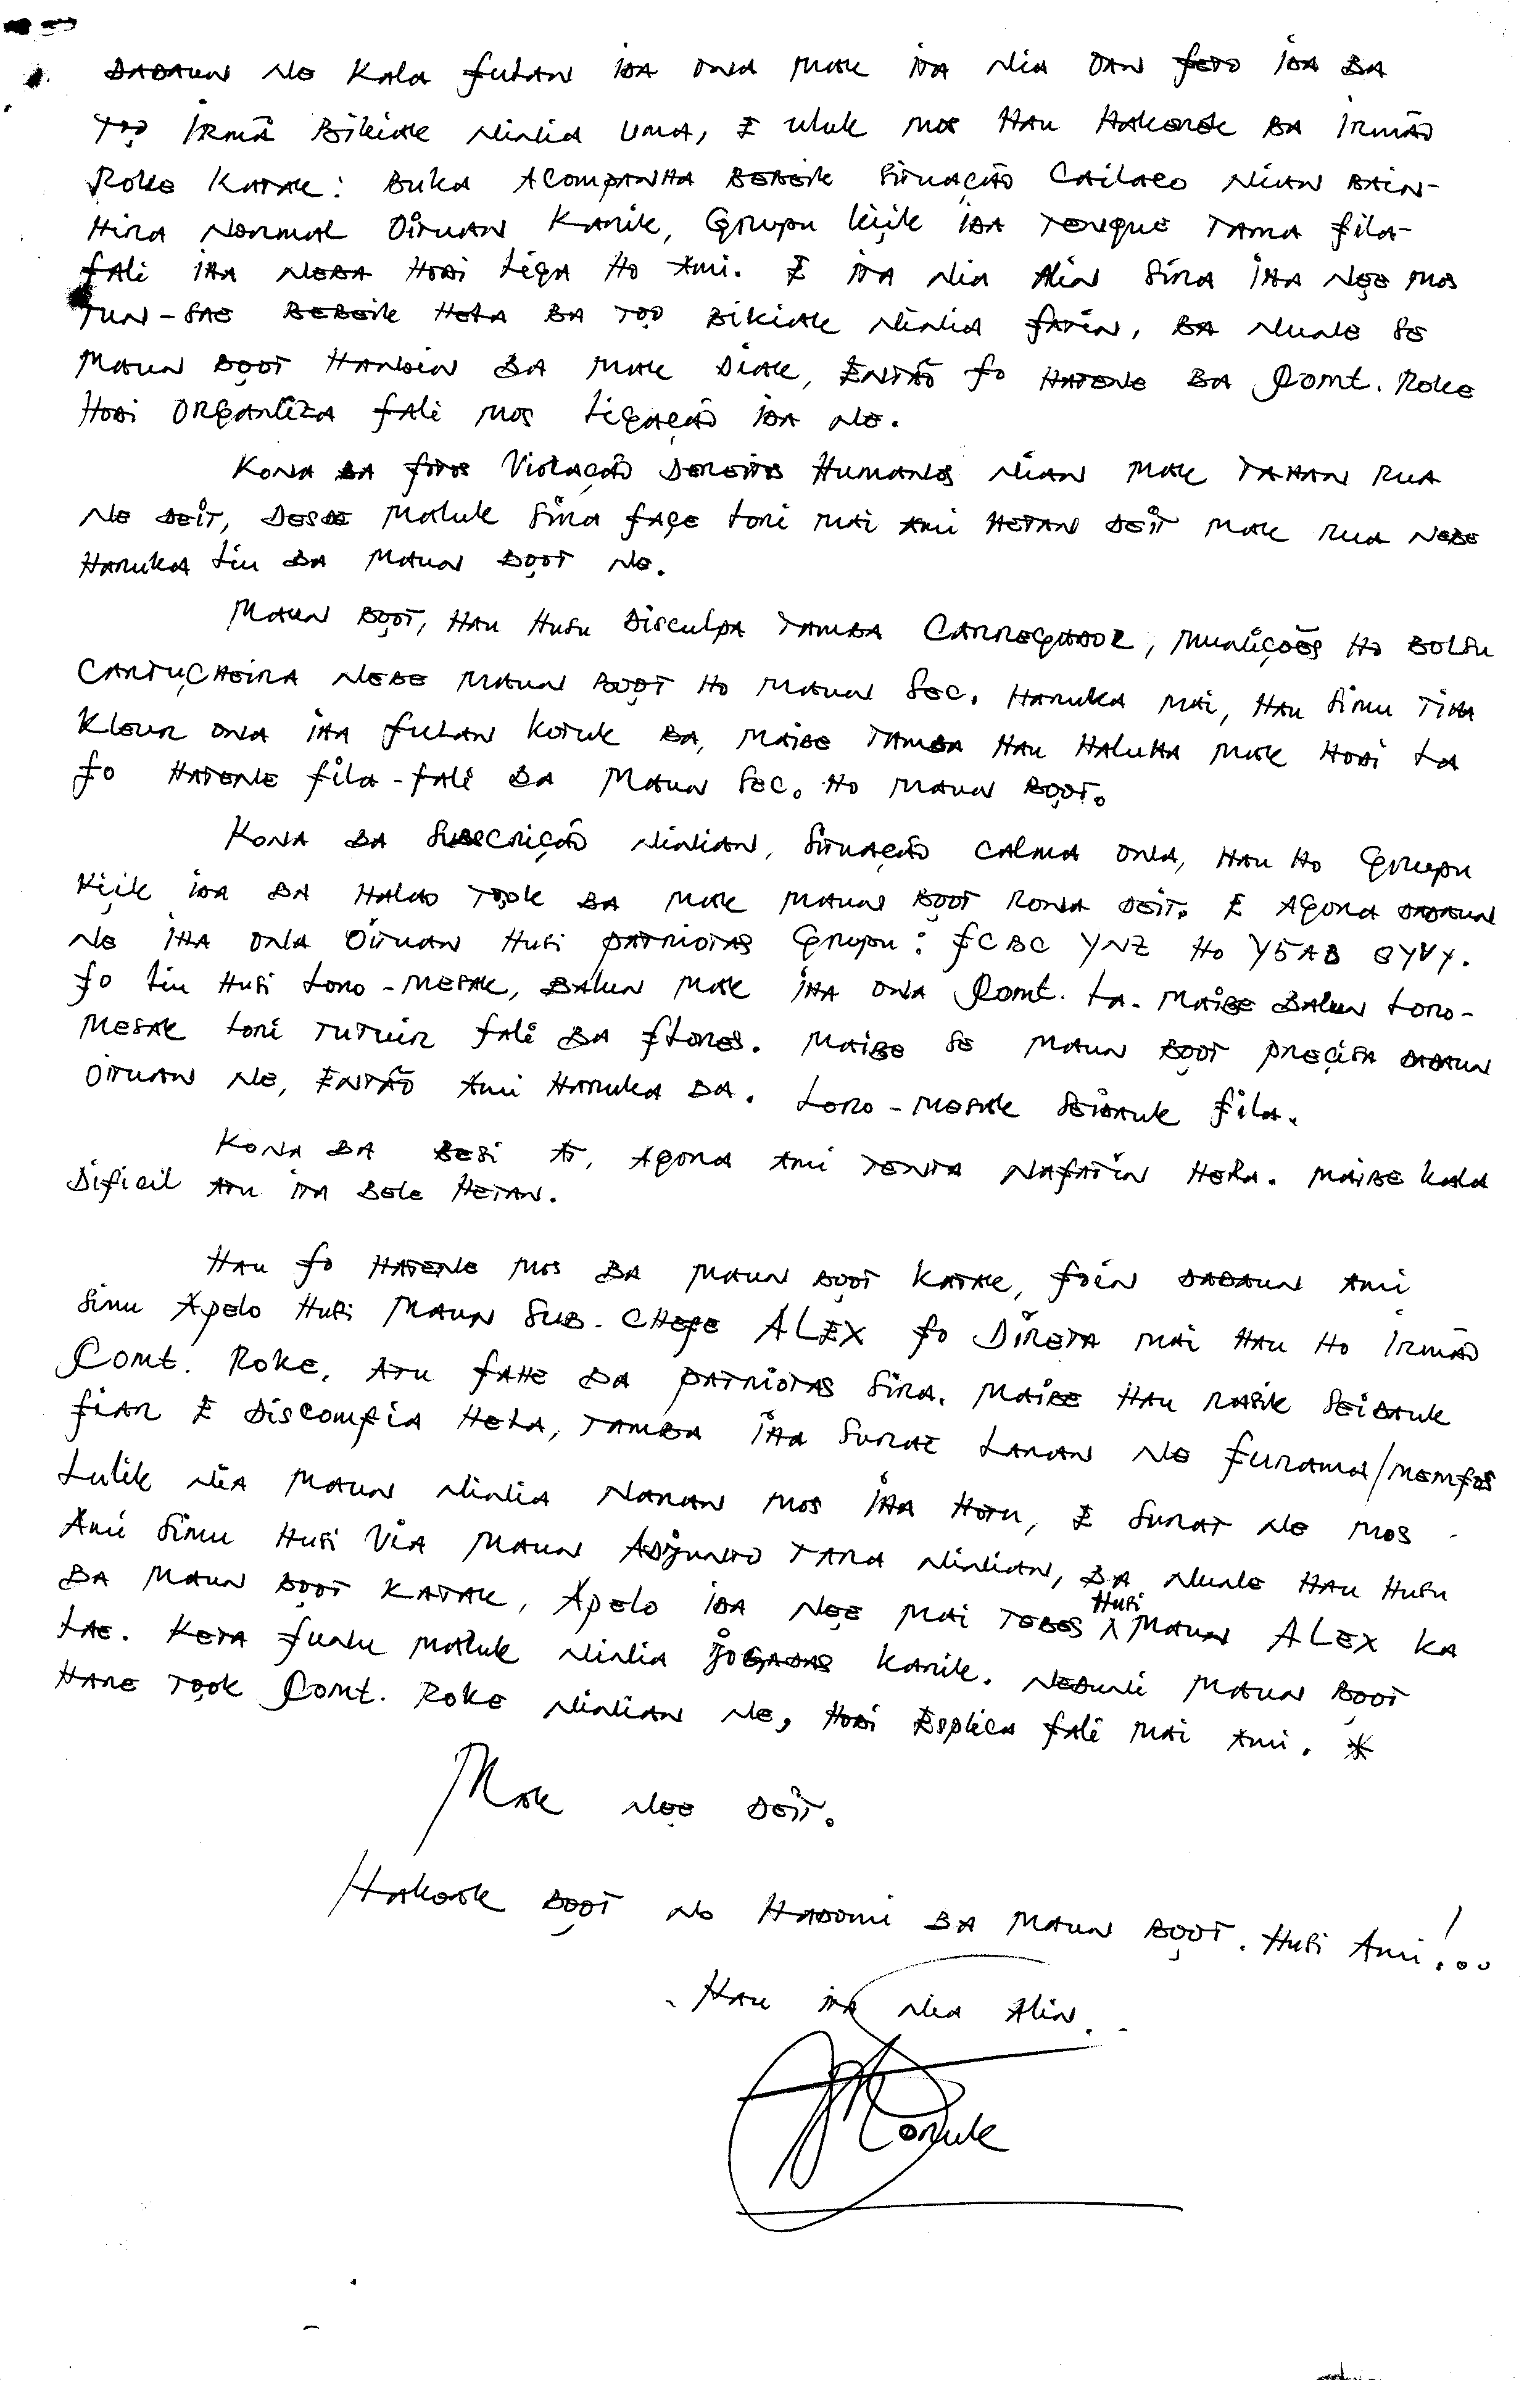 DADAUN NE KALA FULAN IDA ONA MAK ITA NIA OAN FETO IDA BA
TỌO IRMÃ BIKIAK NINIA UMA, E ULUK MOS HAU HAKEREK BA IRMÃO
ROKE KATAK: BUKA ACOMPANHA BEBEIK SITUAÇÃO CAILACO NIAN BAIN-
HIRA NORMAL OITUAN KARIK, GRUPU KIIK IDA TENQUE TAMA FILA-
FALI IHA NEBA HODI LIGA HO AMI. E ITA NIA ALIN SIRA IHA NẸE MOS
TUN-SAE BEBEIK HELA BA TỌO BIKIAK NINIA FATIN, BA NUNE SE
MAUN BỌOT HANOIN BA MAK DIAK, ENTÃO FO HATENE BA COMT. ROKE
HODI ORGANIZA FALI MOS LIGAÇÃO IDA NE.
KONA BA FOTOS VIOLAÇÃO DEREITOS HUMANOS NIAN MAK TAHAN RUA
NE DEIT, DESDE MALUK SIRA FAẸE LORI MAI AMI HETAN DEIT MAK RUA NEBE
HARUKA LIU BA MAUN BỌOT NE.
MAUN BỌOT, HAU HUSU DISCULPA TAMBA CARREGUADOR, MUNIÇÕES HO BOLSU
CARTUCHEIRA NEBE MAUN BỌOT HO MAUN SEC. HARUKA MAI, HAU SIMU TIHA
KLEUR ONA IHA FULAN KOTUK BA, MAIBE TAMBA HAU HALUHA MAK HODI LA
FO HATENE FILA-FALI BA MAUN SEC. HO MAUN BỌOT.
KONA BA SUBSCRIÇÃO NINIAN, SITUAÇÃO CALMA ONA, HAU HO GRUPU
KIIK IDA BA HALAO TỌOK BA MAK MAUN BỌOT RONA DEIT. E AGORA DADAUN
NE IHA ONA OITUAN HUSI PATRIOTAS GRUPU: FCBC YNZ HO Y5AB
FO LIU HUSI LORO-MESAK, BALUN MAK IHA ONA COMT. LA. MAIBE BALUN LORO-
MESAK LORI TUTUIR FALI BA FLORES. MAIBE SE MAUN BỌOT PRECISA DADAUN
OITUAN NE, ENTÃO AMI HARUKA BA. LORO-MESAK SEIDAUK FILA.
KONA BA BESI AT, AGORA AMI TENTA NAFATIN HELA. MAIBE KALA
DIFICIL ATU ITA BELE HETAN.
HAU FO HATENE MOS BA MAUN BỌOT KATAK, FOIN DADAUN AMI
SIMU APELO HUSI MAUN SUB. CHEFE ALEX FO DIRETA MAI HAU HO IRMÃO
COMT. ROKE, ATU FAHE BA PATRIOTAS SIRA. MAIBE HAU RASIK SEIDAUK
FIAR E DISCOMFIA HELA, TAMBA IHA SURAT LARAN NE FURAMA/MEMFOS
LULIK NIA MAUN NINIA NARAN MOS IHA HOTU, E SURAT NE MOS
AMI SIMU HUSI VIA MAUN ADJUNTO TARA NINIAN, BA NUNE HAU HUSU
BA MAUN BỌOT KATAK, APELO IDA NẸE MAI TEBES HUSI MAUN ALEX KA
LAE. KETA FUNU MALUK NINIA JOGADAS KARIK. NEDUNI MAUN BỌOT
HARE TỌOK COMT. ROKE NINIAN NE, HODI ESPLICA FALI MAI AMI. *
MAK NẸE DEIT.
HAKOAK BỌOT NO HADOMI BA MAUN BỌOT. HUSI AMI!...
HAU ITA NIA ALIN.